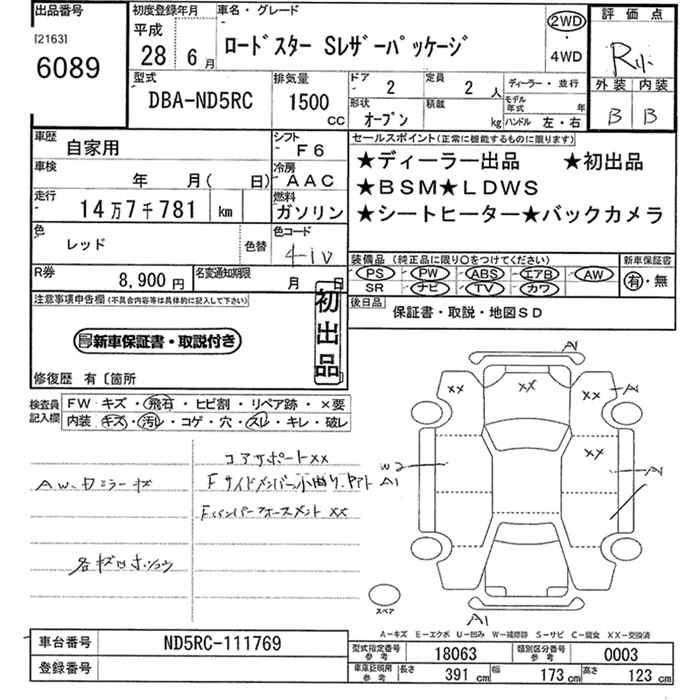 出品番号 初度登録年月 車名・グレード 評価点
[2163] 平成 ロードスター Sレザーパッケージ 2WD
6089 28 6月 4WD R
型式 排気量 ドア 2 定員 2人 ディーラー・並行 外装 内装
DBA-ND5RC 1500cc 形状 オープン 積載 kg モデル年式 年 B B
ハンドル 左・右
車歴 自家用 シフト F6 セールスポイント(正常に機能するものに限ります)
車検 年 月( 日) 冷房 AAC ★ディーラー出品 ★初出品
走行 14万7千781 km 燃料 ガソリン ★BSM★LDWS
★シートヒーター★バックカメラ
色 レッド 色替 色コード
R券 8,900円 名変通知期限 月 日 装備品(純正品に限り○をつけてください) 新車保証書
PS PW ABS エアB AW 有・無
SR ナビ TV カワ
注意事項申告欄(不具合内容等は具体的に記入して下さい) 初出品 後日品 保証書・取説・地図SD
新車保証書・取説付き
修復歴 有〔箇所
検査員記入欄 FW キズ・飛石・ヒビ割・リペア跡・×要
内装・キズ・汚レ・コゲ・穴・スレ・キレ・破レ
コアサポートXX
AW、ドミラーキズ Fサイドメンバー小曲り、
各キズ凹
A1
XX XX XX A
XX
W2 A
A1
スペア A1
A-キズ E-エクボ U-凹み W-補修跡 S-サビ C-腐食 XX-交換済
車台番号 ND5RC-111769 型式指定番号参考 18063 類別区分番号参考 0003
登録番号 車庫証明用参考 長さ 391cm 幅 173cm 高さ 123cm